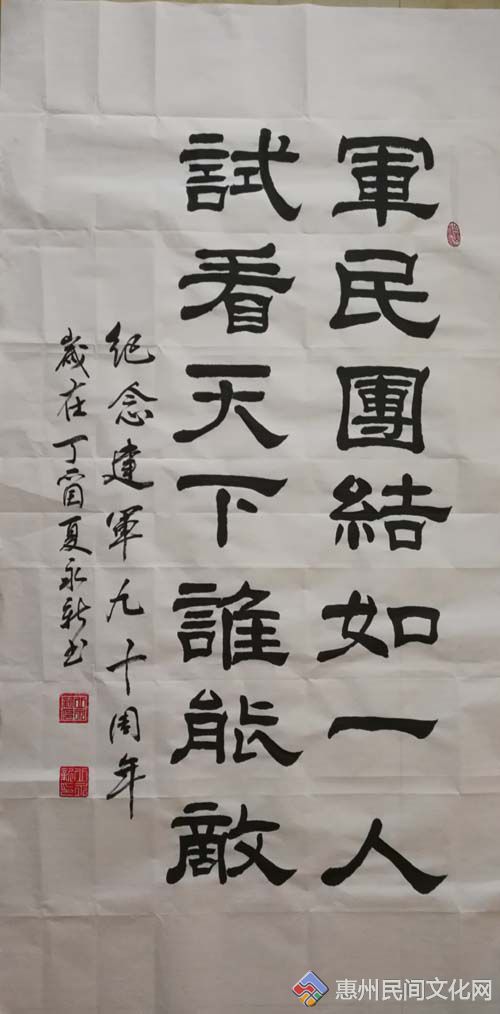 軍民團結如一人
試看天下誰能敵
紀念建軍九十周年
歲在丁酉夏永新书
惠州民间文化网